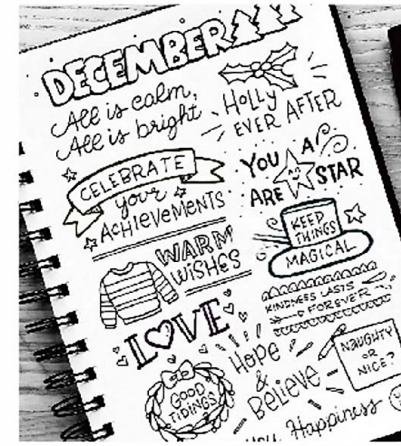 DECEMBER
All is calm,
All is bright
HOLLY
EVER AFTER
CELEBRATE
your
ACHIEVEMENTS
YOU A
ARE STAR
KEEP
THINGS
MAGICAL
WARM
WISHES
KINDNESS LASTS
FOREVER
LOVE
HOPE
&
Believe
NAUGHTY
OR
NICE?
GOOD
TIDINGS
Happiness